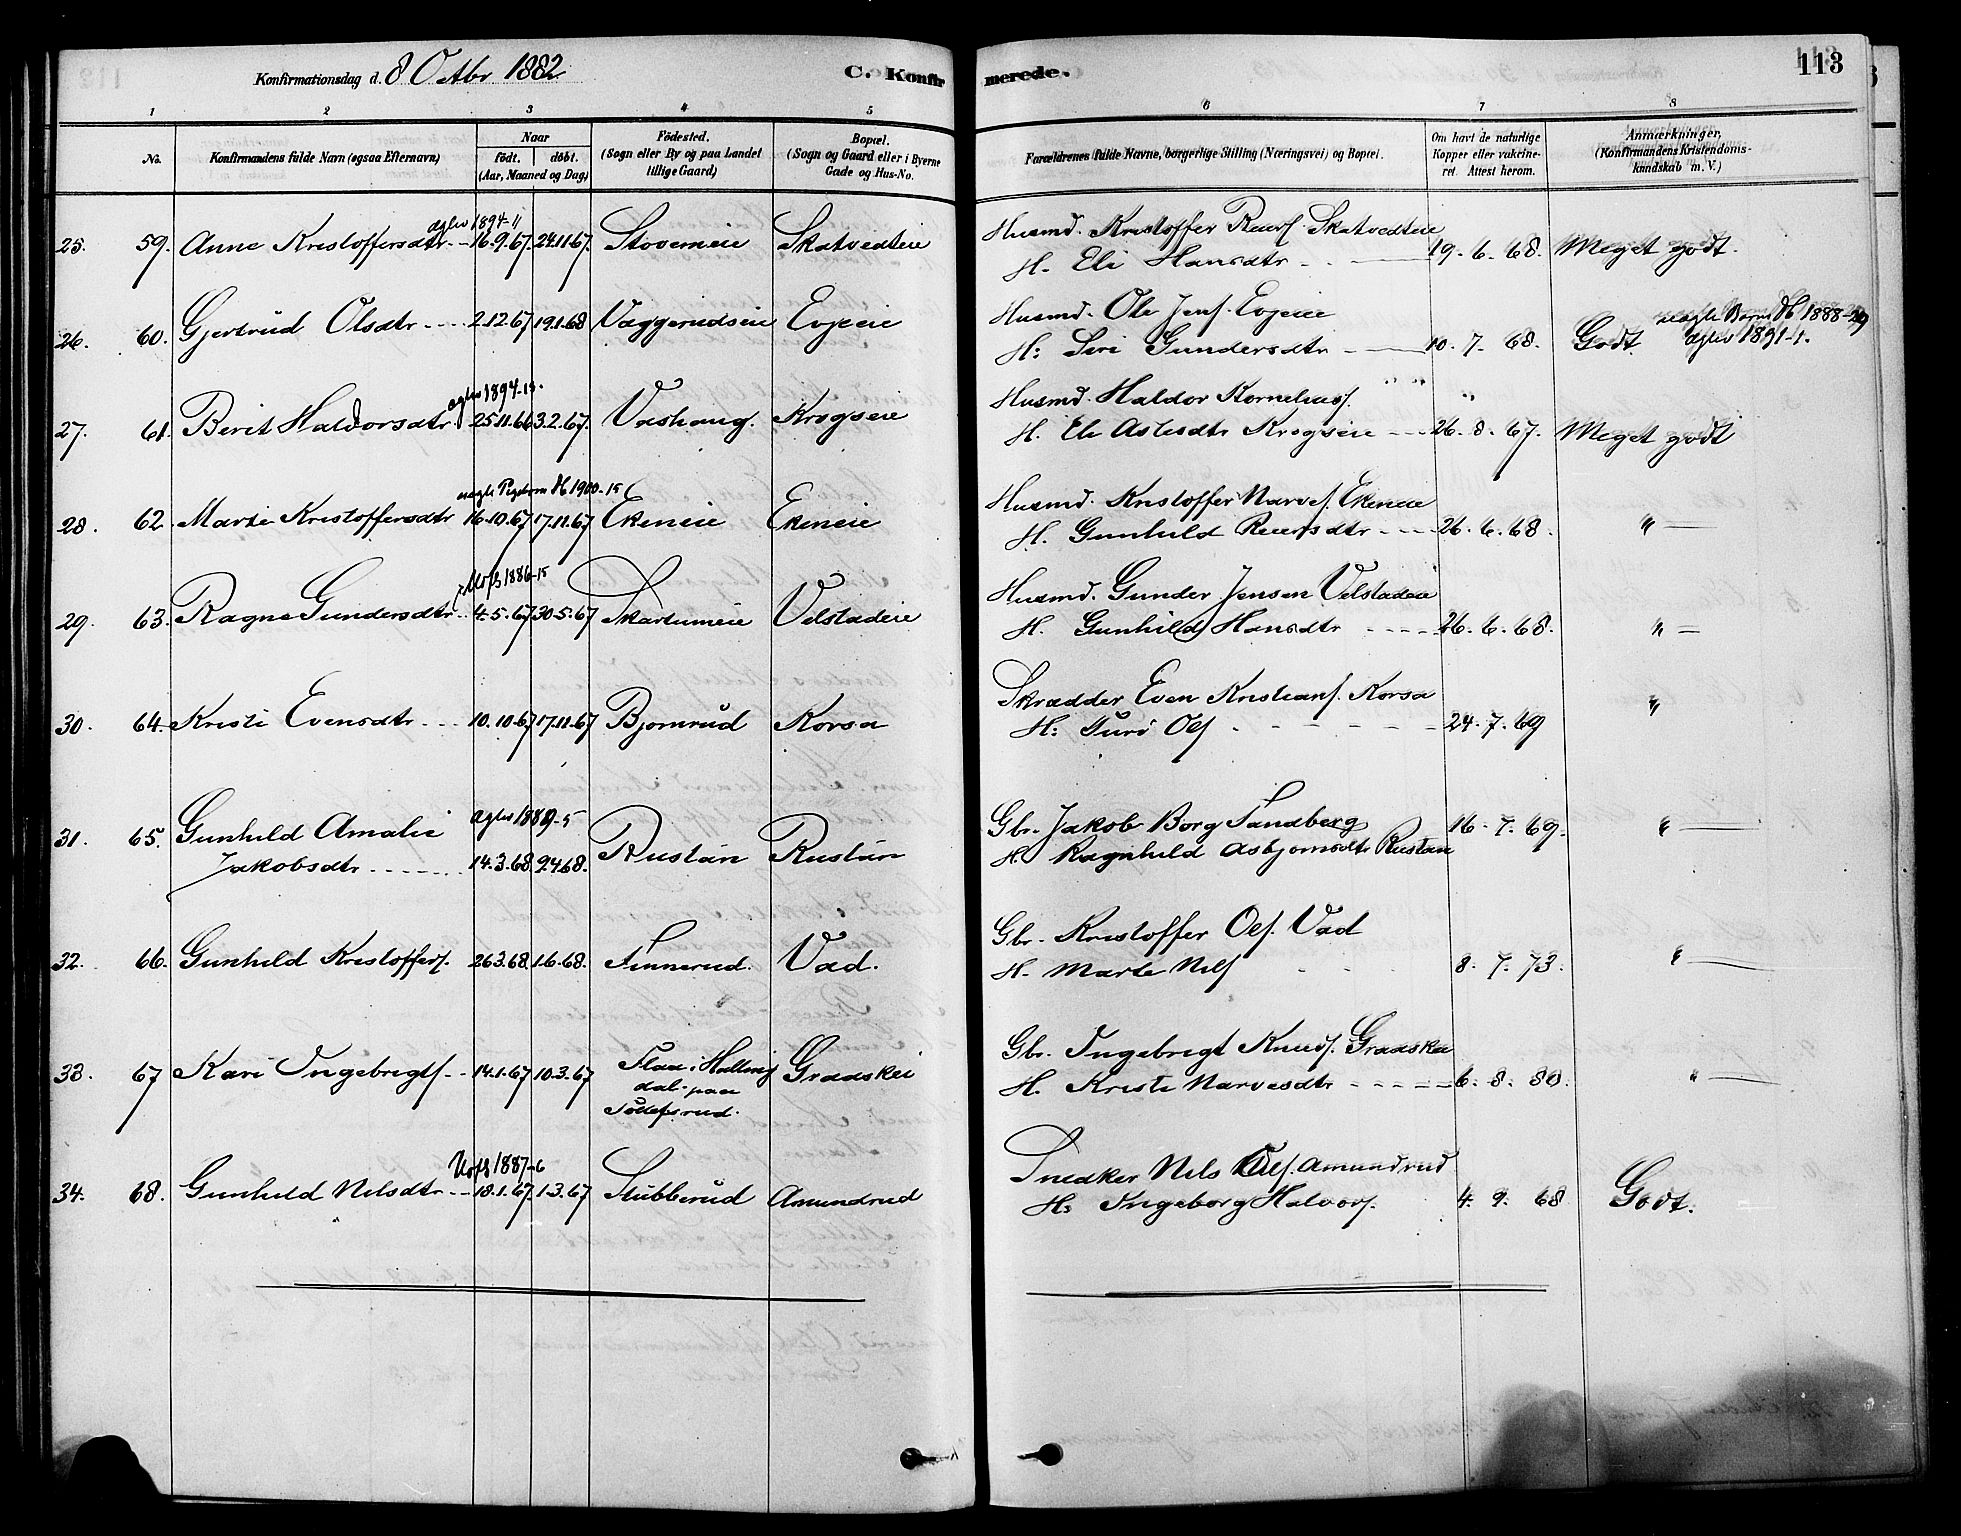 Konfirmationsdag d. 8 Octbr 1882
C. Konfirmerede.
113
1 2 3 4 5 6 7 8
No. Konfirmandens fulde Navn (ogsaa Efternavn) Naar født. døbt. (Aar, Maaned og Dag) Fødested. (Sogn eller By og paa Landet tillige Gaard) Bopæl. (Sogn og Gaard eller i Byerne Gade og Hus-No. Forældrenes fulde Navne, borgerlige Stilling (Næringsvei) og Bopæl. Om havt de naturlige Kopper eller vakcineret. Attest herom. Anmærkninger, (Konfirmandens Kristendomskundskab m. V.)
agler 1894-11
25. 59. Anne Kristoffersdtr 16.9.67. 24.11.67. Stoverneie Skatvedteie Husmd. Kristoffer Reiers. Skatvedteie
H. Eli Hansdtr 19. 6. 68. Meget godt.
26. 60. Gjertrud Olsdtr 2.12.67 19.1.68 Væggerudseie Evjeeie Husmd. Ole Jens. Evjeeie
H: Siri Gundersdtr 10. 7. 68. Godt. 1888-29
agler 1891-1.
agler 1894-13.
27. 61. Berit Haldorsdtr 25.11.66 3.2.67. Vashaug. Krogseie Husmd. Haldor Kornelius.
H. Eli Aslesdtr Krogseie 26. 8. 67. Meget godt
1900-15
28. 62. Marte Kristoffersdtr 16.10.67 17.11.67 Ekeneie Ekeneie Husmd. Kristoffer Narves. Ekeneie
H. Gunhild Reiersdtr 26. 6. 68. "
1886-15
29. 63. Ragne Gundersdtr 4.5.67 30.5.67 Skartumeie Velstadeie Husmd. Gunder Jensen Velstadeie
H. Gunhild Hansdtr 26. 6. 68. "
30. 64. Kristi Evensdtr 10.10.67 17.11.67 Bjornrud Korsa Skrædder Even Kristians. Korsa
H: Turi Ols 24. 7. 69 "
31. 65. Gunhild Amalie agler 1889-5
Jakobsdtr 14.3.68 9.4.68. Rustan Rustan Gbr. Jakob Borg Sandberg 16. 7. 69. "
H. Ragnhild Asbjornsdtr Rustan
32. 66. Gunhild Kristoffers. 26.3.68. 1.6.68. Finnerud. Vad. Gbr. Kristoffer Ols. Vad
H. Marte Nils 8. 7. 73. "
33. 67 Kari Ingebrigts. 14.1.67 10.3.67 Flaa i Halling
dal paa
Gradskei Gbr. Ingebrigt Knuds. Gradskei
H. Kristi Narvesdtr 6. 8. 80. "
1887-6
34. 68. Gunhild Nilsdtr 18.1.67. 1.3.67 Stubberud Amundrud Snedker Nils Ols. Amundrud
H: Ingeborg Halvors. 4. 9. 68 Godt.